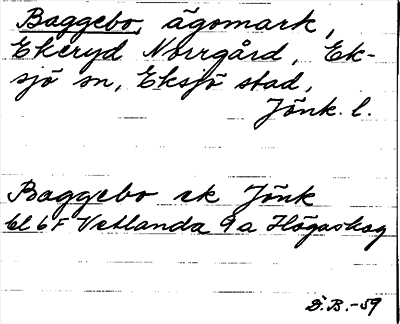 Baggebo, ägomark,
Ekeryd Norrgård, Ek-
sjö sn, Eksjö stad,
Jönk. l.
Baggebo ek Jönk
bl 6F Vetlanda 9a Högaskog
D.B. -59